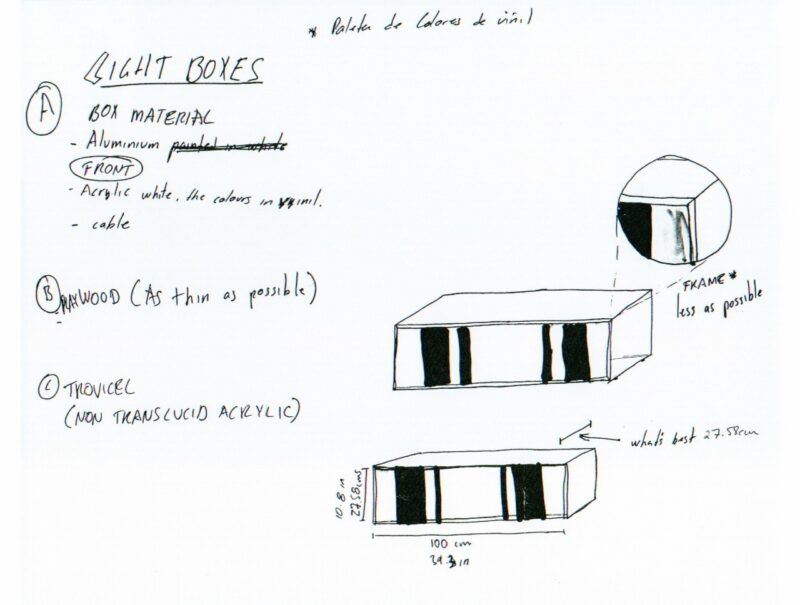 * Paleta de Colores de viñil
LIGHT BOXES
A
BOX MATERIAL
- Aluminium painted in white
FRONT
- Acrylic white, the colours in vinil.
- cable
B PLAYWOOD (As thin as possible)
-
C TROVICEL
(NON TRANSLUCID ACRYLIC)
FRAME *
less as possible
what's best 27.58cm
10.8 in
27.58cms
100 cm
39.3 in